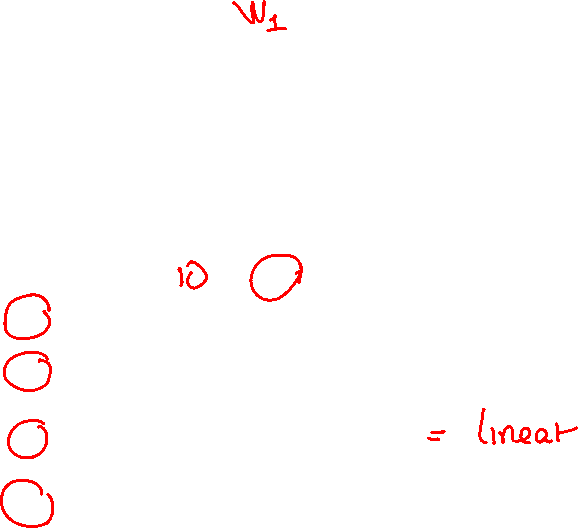 W1
10
= linear